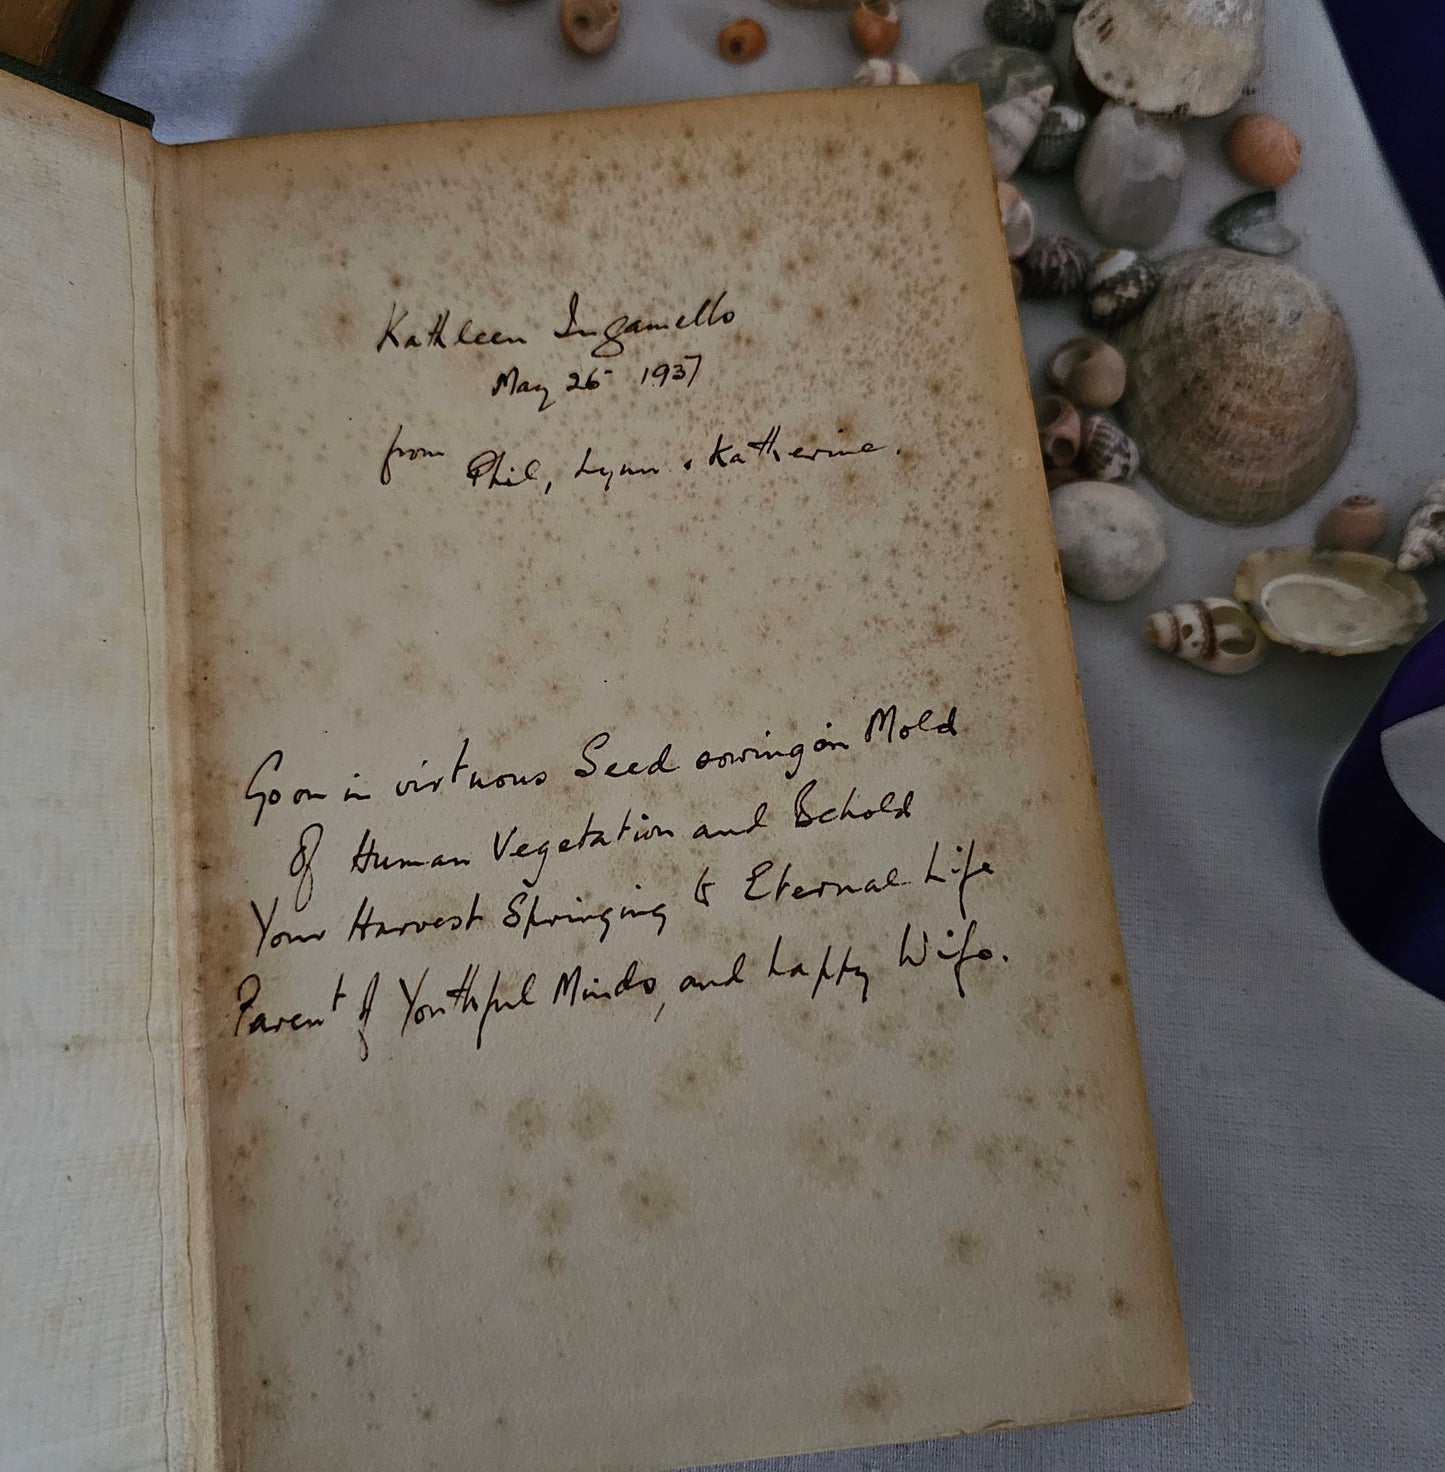 Kathleen Ingamells
May 26 1937
from Phil, Lynn & Katherine.
Go on in virtuous Seed sowing on Mold
Of Human Vegetation and Behold
Your Harvest Springing to Eternal Life
Parent of Youthful Minds, and happy Wife.